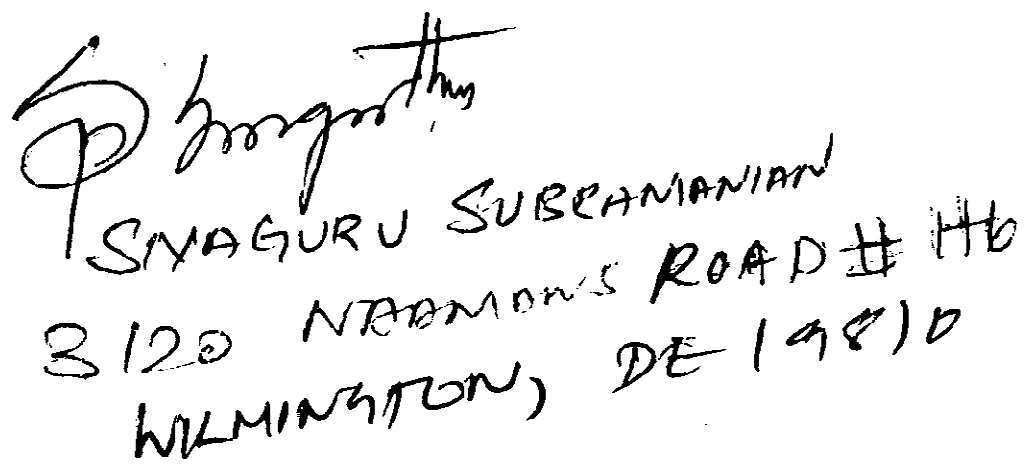 SIVAGURU SUBRAMANIAN
3120 NAAMAN'S ROAD # H6
WILMINGTON, DE 19810